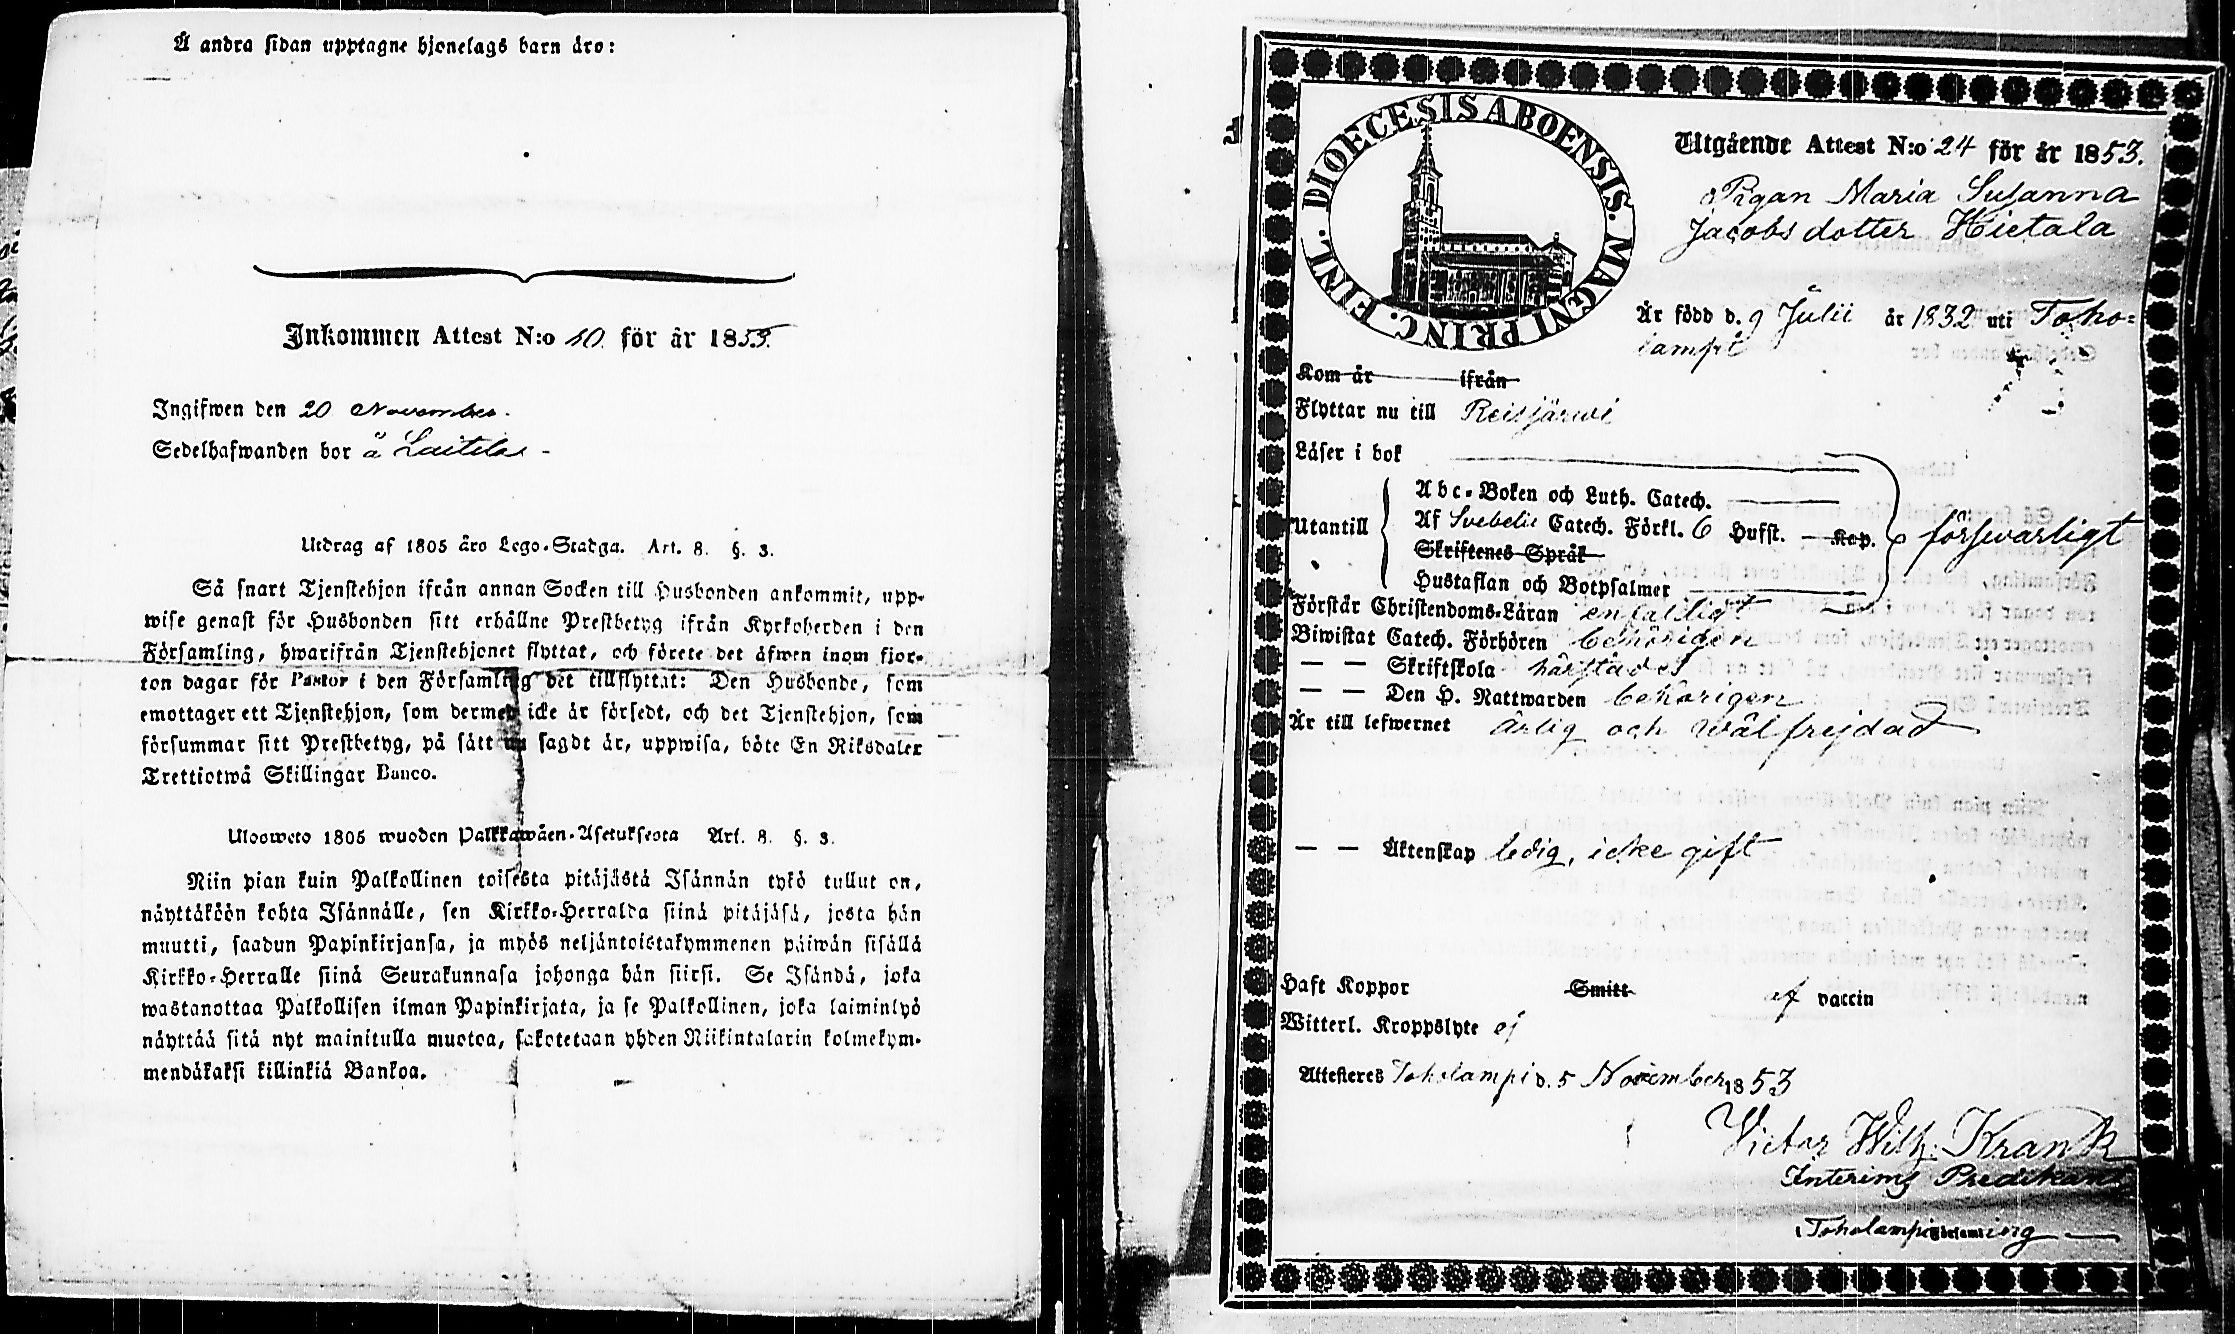 Å andra sidan upptagne hjonelags barn äro:
Inkommen Attest N:o 10. för år 1853.
Ingifwen den 20 November.
Sedelhafwanden bor å Laitila -
Utdrag af 1805 åro Lego-Stadga. Art. 8. §. 3.
Så snart Tjenstehjon ifrån annan Socken till Husbonden ankommit, upp-
wise genast för Husbonden sitt erhållne Prestbetyg ifrån Kyrkoherden i den
Församling, hwarifrån Tjenstehjonet flyttat, och förete det äfwen inom fjor-
ton dagar för Pastor i den Församling det tillflyttat: Den Husbonde, som
emottager ett Tjenstehjon, som dermed icke är försedt, och det Tjenstehjon, som
försummar sitt Prestbetyg, på sätt nu sagdt är, uppwisa, böte En Riksdaler
Trettiotwå Skillingar Banco.
Ulosweto 1805 wuoden Palkkawäen-Asetuksesta Art. 8. §. 3.
Niin pian kuin Palkollinen toisesta pitäjästä Isännän tykö tullut on,
näyttäköön kohta Isännälle, sen Kirkko-Herralda siinä pitäjäsä, josta hän
muutti, saadun Papinkirjansa, ja myös neljäntoistakymmenen päiwän sisällä
Kirkko-Herralle siinä Seurakunnasa johonga hän siirsi. Se Isändä, joka
wastanottaa Palkollisen ilman Papinkirjata, ja se Palkollinen, joka laiminlyö
näyttää sitä nyt mainitulla muotoa, sakotetaan yhden Riikintalarin kolmekym-
mendäkaksi killinkiä Bankoa.
DIOECESIS ABOENSIS. MAGNI PRINC. FINL.
Utgående Attest N:o 24 för år 1853.
Pigan Maria Susanna
Jacobsdotter Hietala
Är född d. 9 Julii år 1832 uti Toho=
lampi
Kom år ifrån
Flyttar nu till Reisjärwi
Läser i bok
Utantill
Abc-Boken och Luth. Catech.
Af Svebelii Catech. Förkl. 6 Hufst. Kap.
Skriftenes Språk
Hustaflan och Botpsalmer
försvarligt
Förstår Christendoms-Läran enfaldigt
Biwistat Catech. Förhören behörigen
— — Skriftskola härstädes
— — Den H. Nattwarden behörigen
Är till lefwernet ärlig och wälfrejdad
— — Äktenskap ledig, icke gift
Haft Koppor Smitt ef vaccin
Witterl. Kroppslyte ej
Attesteres Toholampi d. 5 November 1853
Victor Wilh. Krank
Interims Predikant
Toholampi